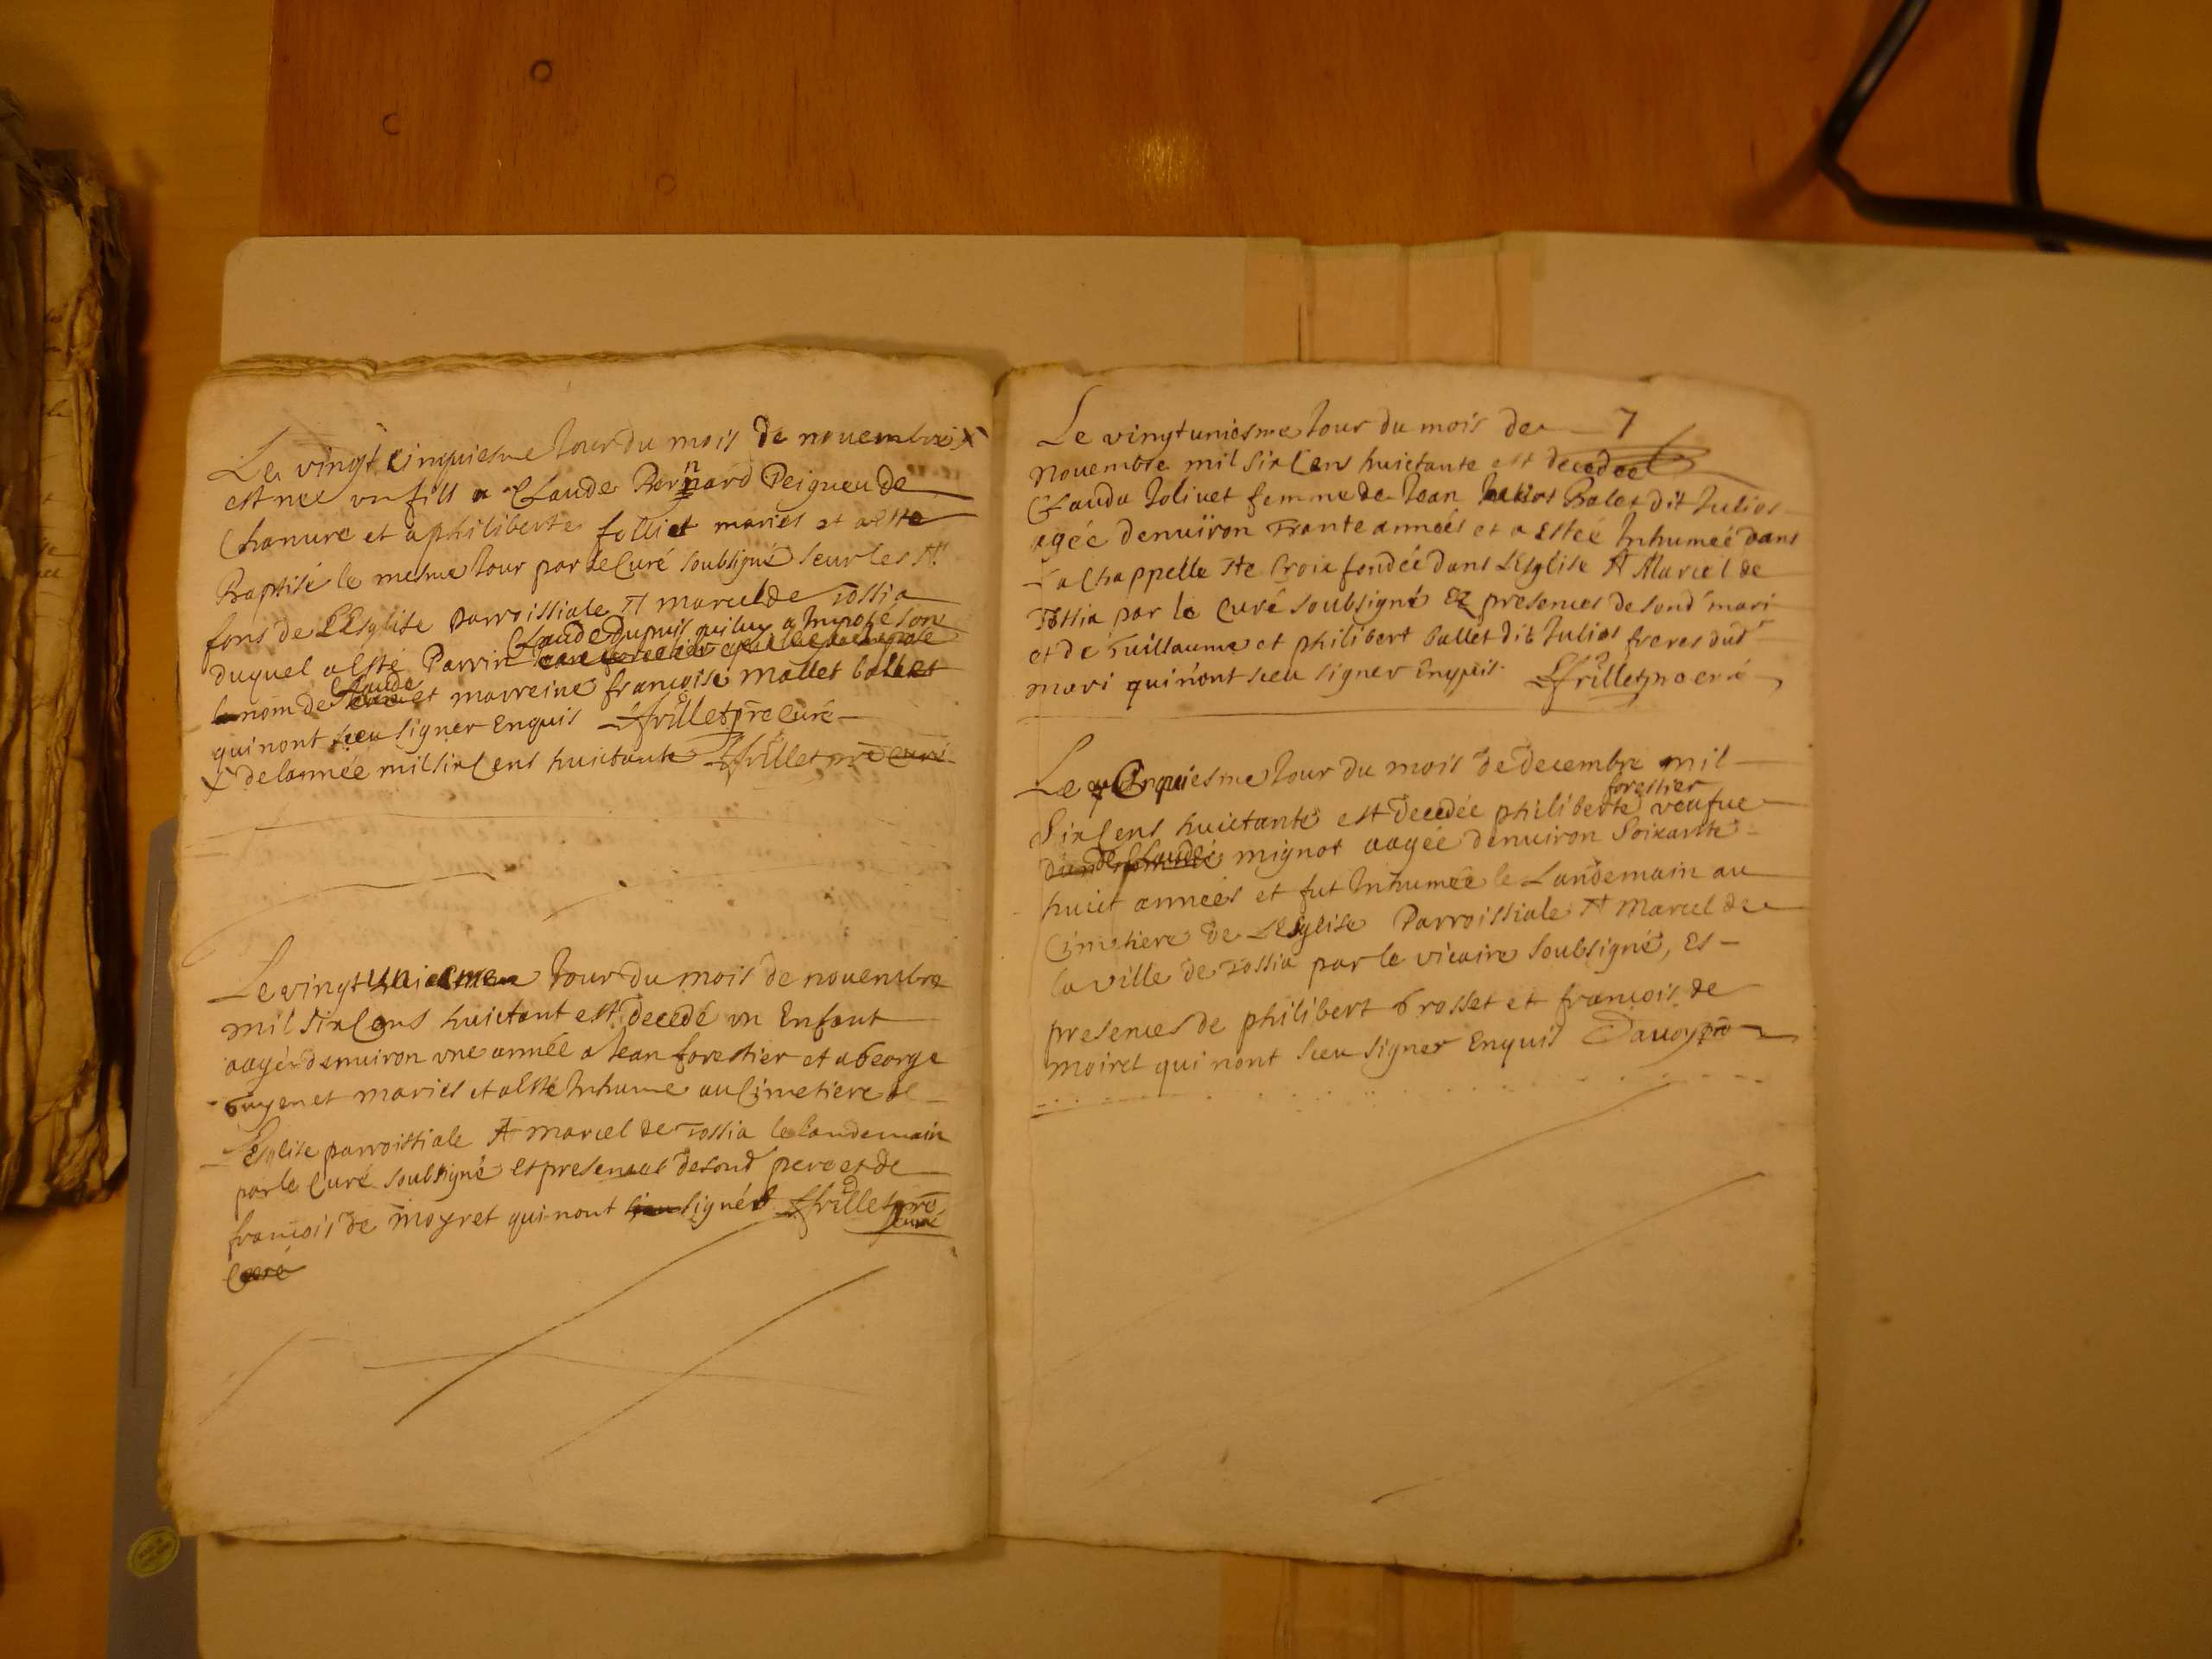 Le vingt cinquiesme Jour du mois de nouembre X
est nee un fils a Claude Bernard Peigneu de
Chanure et a philiberte folliet mariés et a este
Baptisé le mesme Jour par le Curé soubsigné seur les
fons de LEsglise parroissiale St marcel de Tossia
duquel a esté Parrin Claude Dupuis qui luy a Imposé son
nom de Claude et marreine francoise mallet ballet
qui nont sceu signer Enquis Ffrillet pre Curé
X de lannée mil six Cens huictante Ffrillet pre Curé
Le vingt uniesme Jour du mois de nouembre
mil six Cens huictant est decedé un Enfant
aagé denuiron une année a Jean forestier et a George
Guyenet mariés et a esté Inhume au Cimetiere de
LEsglise parroissiale St marcel de Tossia le landemain
par le Curé soubsigné es presences de sond pere et de
francois de moyret qui nont signés Ffrillet pre
Curé
Curé
Le vingtuniesme Jour du mois de 7
nouembre mil six Cens huictante est decedee
Clauda Joliuet femme de Jean Balet dit Julios
agée denuiron Trante années et a Esteé Inhumeé dans
La Chappelle Ste Croix fondée dans LEsglise St Marcel de
Tossia par le Curé soubsigné Ez presences de sond mari
et de Guillaume et philibert ballet dit Julios freres dud
mari qui nont sceu signer Enquis Ffrillet pre curé
Le Cinquiesme Jour du mois de decembre mil
forestier
Six Cens huictante est decedée philiberte veufue
de Claude mignot aagée denuiron Soixante
huict années et fut Inhumée le Landemain au
Cimetiere de LEsglise Parroissiale St Marcel de
la ville de Tossia par le vicaire soubsigné, Es
presences de philibert Grosset et francois de
moiret qui nont sceu signer Enquis Dauoy pre